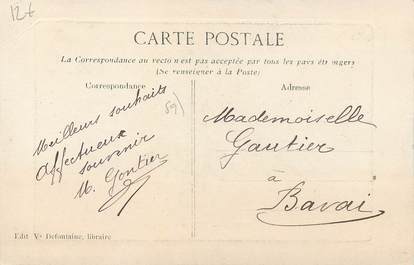 12€
CARTE POSTALE
La Correspondance au recto n'est pas acceptée par tous les pays étrangers
(Se renseigner à la Poste)
Correspondance
Meilleurs souhaits
Affectueux
souvenir
M. Gontier
59)
Adresse
Mademoiselle
Gautier
à
Bavai
Edit Vve Defontaine, libraire